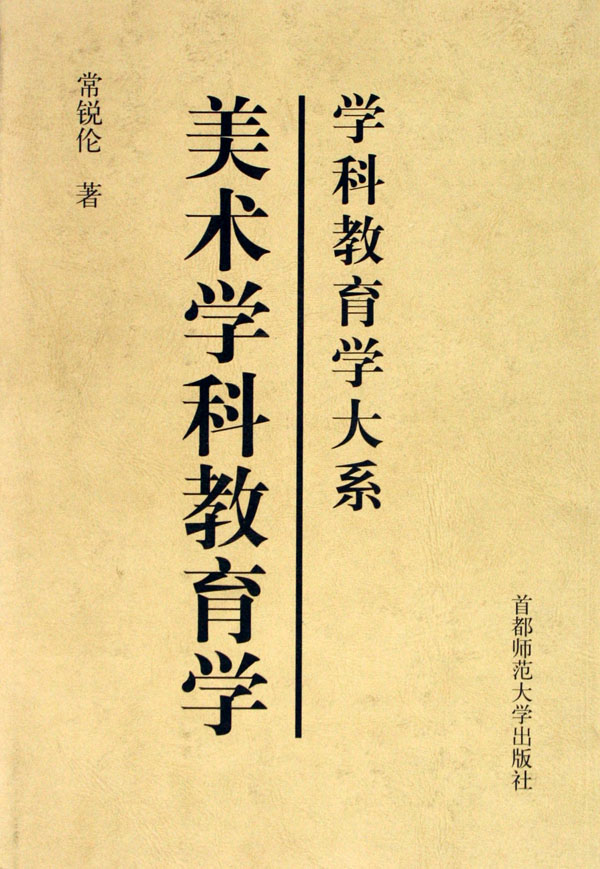 学科教育学大系
美术学科教育学
常锐伦 著
首都师范大学出版社